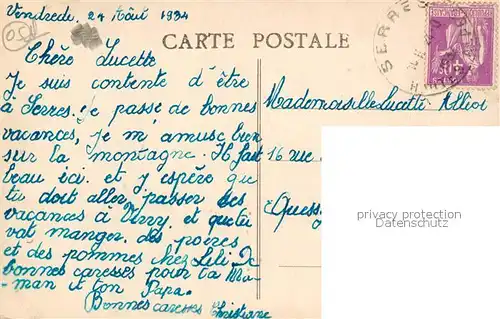 Vendredi. 24 Août 1934
(05)
CARTE POSTALE
SERRES
Chère Lucette
Je suis contente d'être
à Serres. je passe de bonnes
vacances, je m'amuse bien
sur la montagne. Il fait
beau ici. et y espère que
tu doit aller passer tes
vacances à Virry. et que tu
vat manger. des poires
et des pommes chez Lili. De
bonnes caresses pour ta Ma-
man et ton Papa.
Bonnes caresses Christiane
Mademoiselle Lucette Alliot
16 rue
privacy protection
oldthing.de